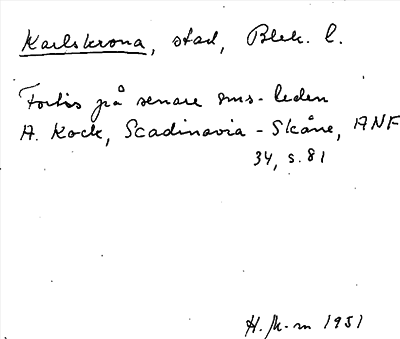 Karlskrona, stad, Blek. l.
Fortis på senare sms-leden
A. Kock, Scadinavia - Skåne, ANF
34, s. 81
H. M-m 1951